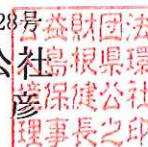 28号
公社
彦
公益財団法
島根県環
境保健公社
理事長之印